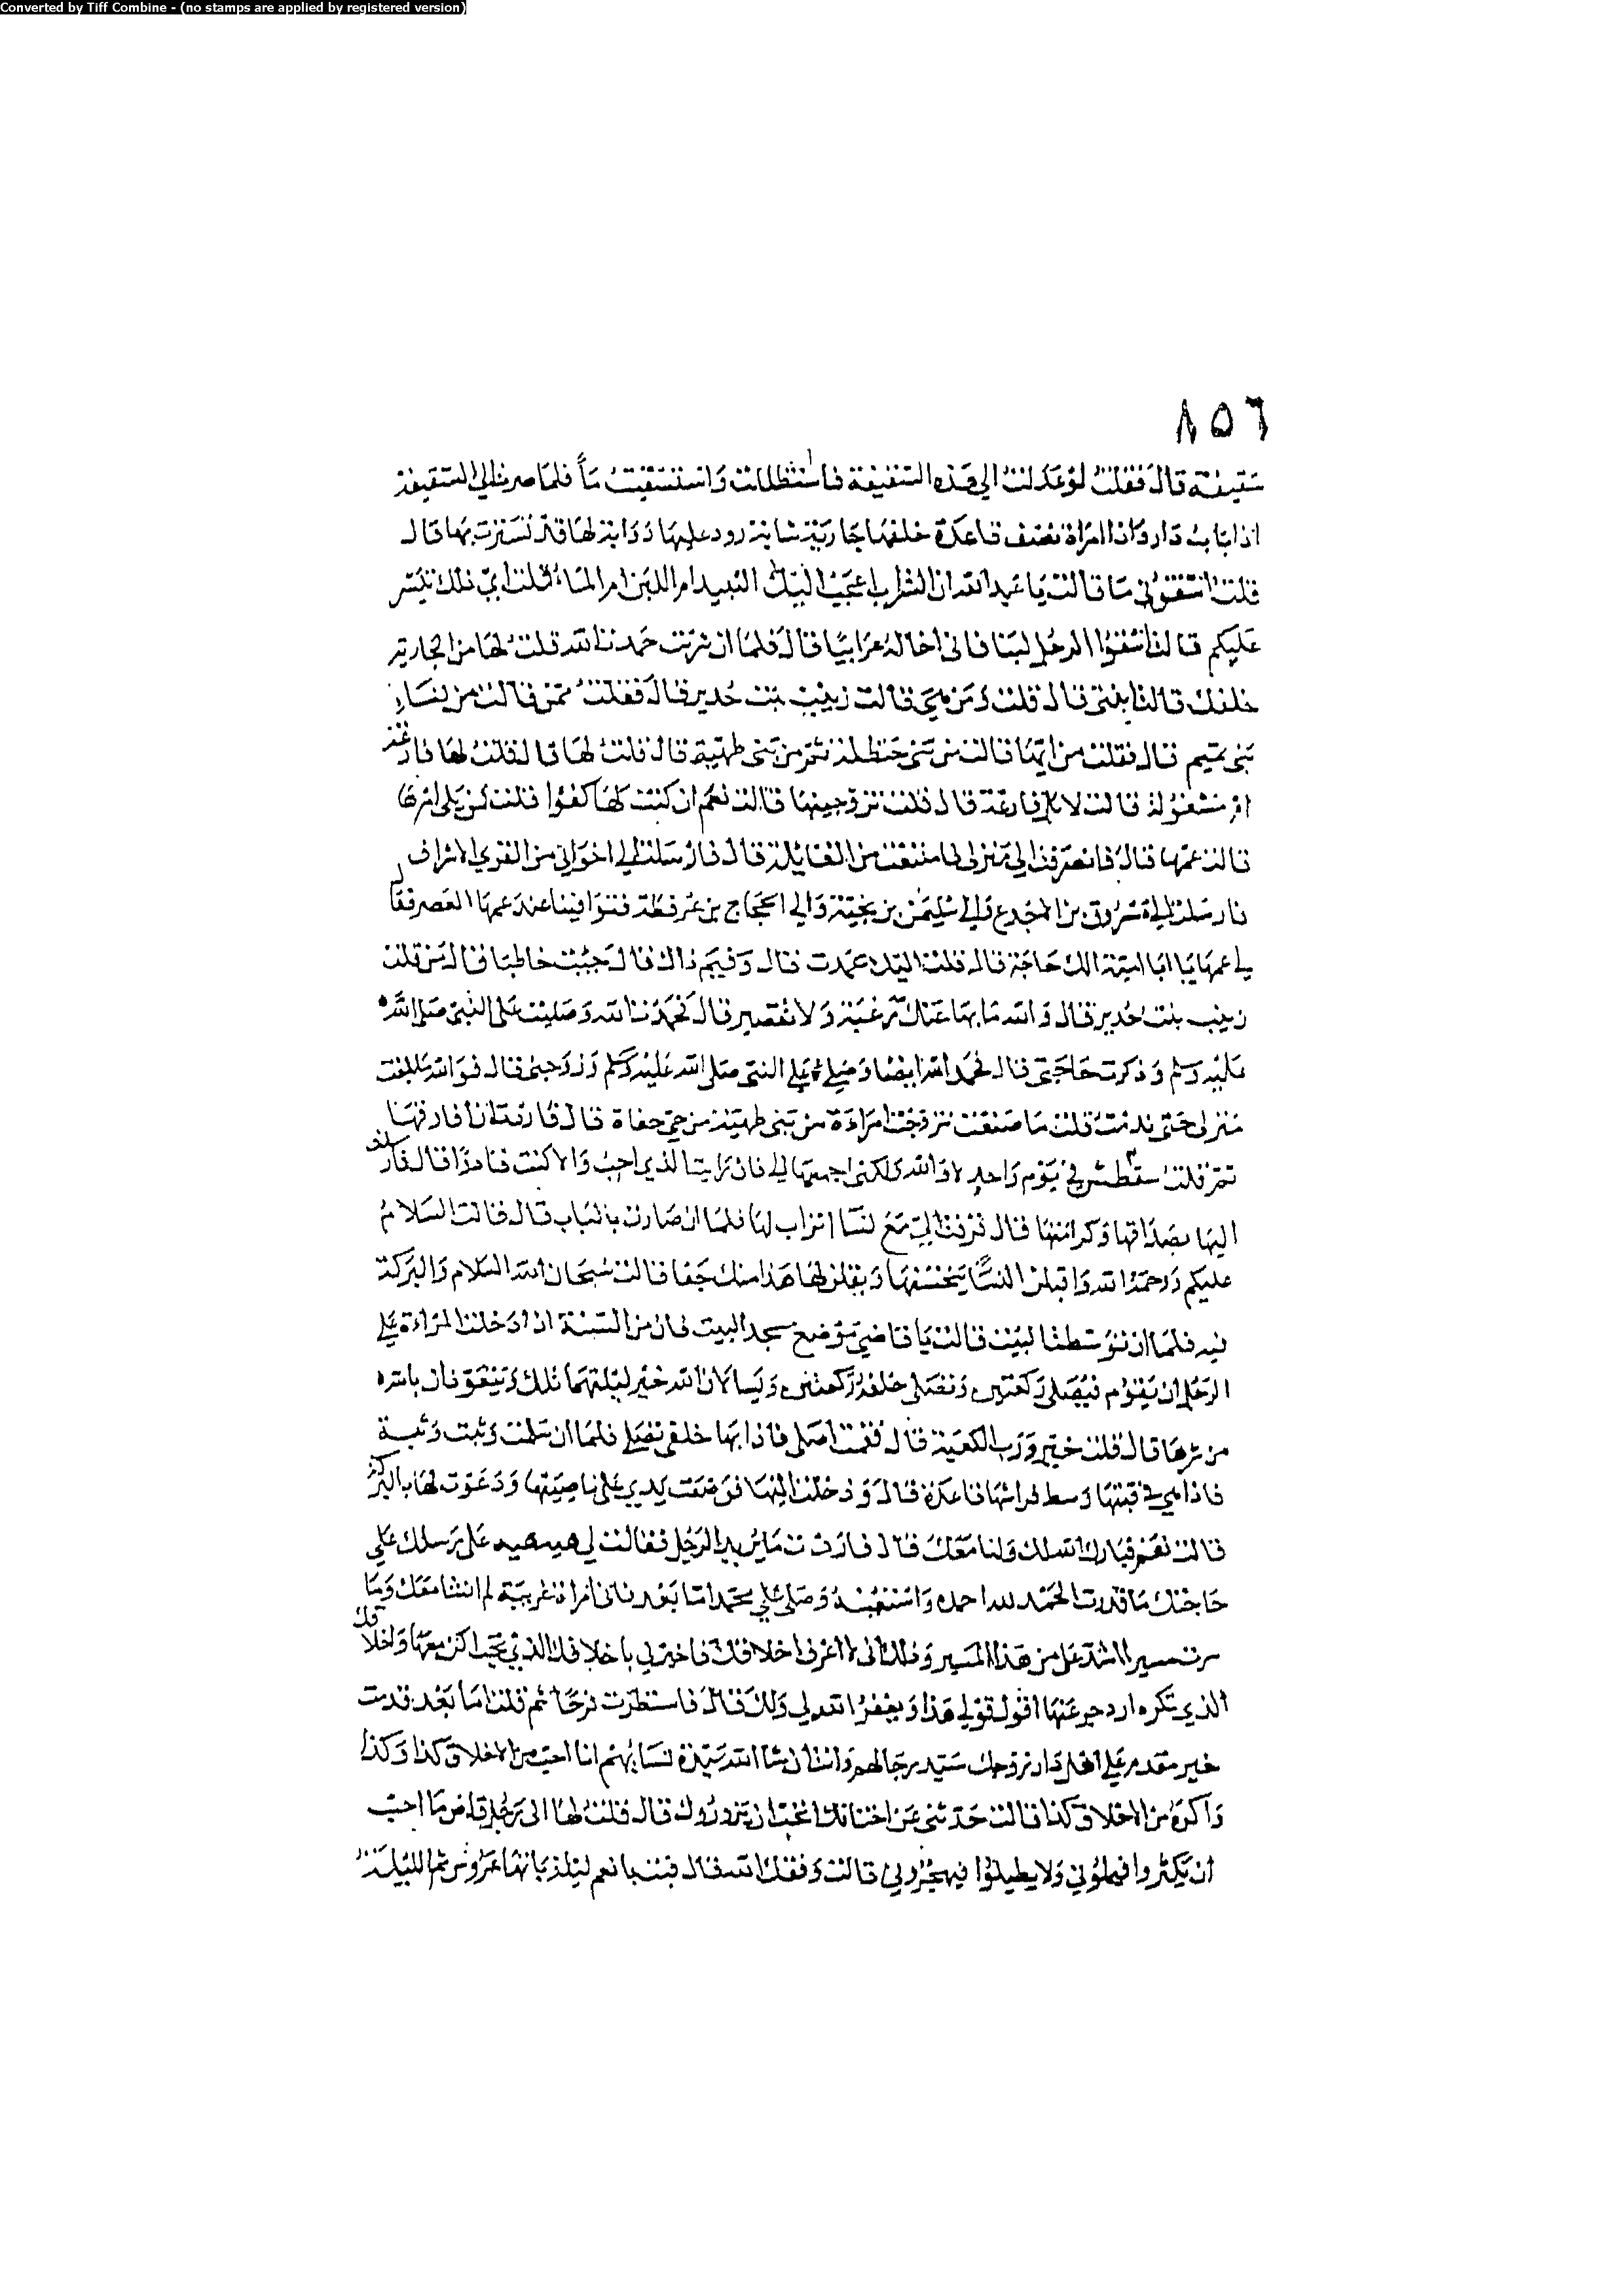 Converted by Tiff Combine - (no stamps are applied by registered version)
٨٥٦
سقيفة قال فقلت لو عدلت الى هذه السقيفة فاستظللت واستسقيت مأ فلما صرت الى السقيفة
اذا باب دار واذا امراة نصف قاعدة خلفها جارية شابة رود عليها ذوابة لها قد تسترت بها قال
قلت اسقوني ما قالت يا عبد الله ان الشراب اعجب اليك النبيذ ام اللبن ام الماء قلت اي ذلك تيسر
عليكم قالت اسقوا الرجل لبنا فاني اخاله عرابيا قال فلما ان شربت حمدت الله قلت لها من الجارية
خلفك قالت ابنتى قال قلت ومن هي قالت زينب بنت حدير قال فقلت ممن قالت من نساء
بنى تميم قال فقلت من ايها قالت من بنى حنظلة ثم من بنى طهية قال قلت لها قال فقلت لها فارغة
ام مشغولة قالت لا بل فارغة قال قلت تزوجينها قالت نعم ان كنت لها كفوا قلت لمن يلى امرها
قالت عمها قال فانصرفت الى منزلى فامتنعت من القائلة قال فارسلت الى اخواني من القرى الاشراف
فارسلت الى مسروق بن الاجدع والى سليمن بن بجية والى الحجاج بن عرفطة فتوافينا عند عمها العصر فقال
لي عمها يا ابا امية الك حاجة قال قلت اليك عمدت قال وفيم ذاك قال جئت خاطبا قال من قلت
زينب بنت حدير قال والله ما بها عنك رغبة ولا تقصير قال فحمدت الله وصليت على النبى صلى الله
عليه وسلم وذكرت حاجتى قال فحمد الله ايضا وصلى على النبى صلى الله عليه وسلم وزوجنى قال فوالله ما بلغت
منزلى حتى ندمت قلت ما صنعت تزوجت امراءة من بنى طهية من حى جفاة قال فاردت ان افارقها
ثم قلت سقطتين في يوم واحد لا والله ولكنى اجمعها الي فان رايت الذي احب والا كنت قادرا قال فارسلت
اليها بصداقها وكرامتها قال فزفت الي مع نسآ اتراب لها فلما ان صارت بالباب قال قالت السلام
عليكم ورحمة الله واقبلن النسآ ينخسنها ويقلن لها هذا منك جفا قالت سبحان الله السلام والبركة
فيه فلما ان توسطت البيت قالت يا قاضي موضع مسجد البيت فان من السنة اذا دخلت المراءة على
الرجل ان يقوم فيصلى ركعتين وتصلى خلفه ركعتين ويسالان الله خير ليلتهما تلك ويتعوذان بالله
من شرها قال قلت خير ورب الكعبة قال فقمت اصلى فاذا بها خلفى تصلى فلما ان سلمت وثبت وثبة
فاذا هي في قبتها وسط فراشها قاعدة قال ودخلت اليها فوضعت يدي على ناصيتها ودعوت لها بالبركة
قالت نعم فبارك الله لك ولنا معك قال فاردت ما يريد الرجل فقالت لي هيه هيه على رسلك على
حاجتك ما قدرت الحمد لله احمده واستعينه وصلى على محمد اما بعد فانى امراة غريبة لم انشا معك وما
سرت مسيرا اشد على من هذا المسير وذلك انى لا اعرف اخلاقك فاخبرنى باخلاقك الذي تحب اكن معها واخلاقك
الذي تكره ازدجر عنها اقول قولي هذا ويغفر الله لي ولك قال فاستطرت فرحا ثم قلت اما بعد قدمت
خير مقدم على اهل دار زوجك سيد رجالهم وانت ان شا الله سيدة نسائهم انا احب من الاخلاق كذا وكذا
واكره من الاخلاق كذا قالت حدثنى عن اختانك اتحب ان يزوروك قال قلت لها انى رجل قاض ما احب
ان يكثروا فيملوني ولا يطيلوا فيهجروني قالت وفقك الله قال فبتنا بانعم ليلة باتها عروس ثم الليلة